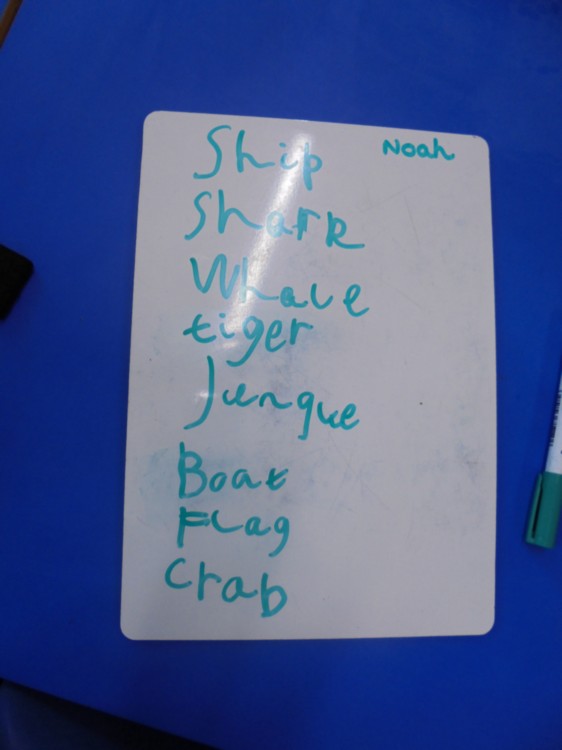 Ship
Noah
Shark
Whale
tiger
Jungue
Boat
Flag
Crab